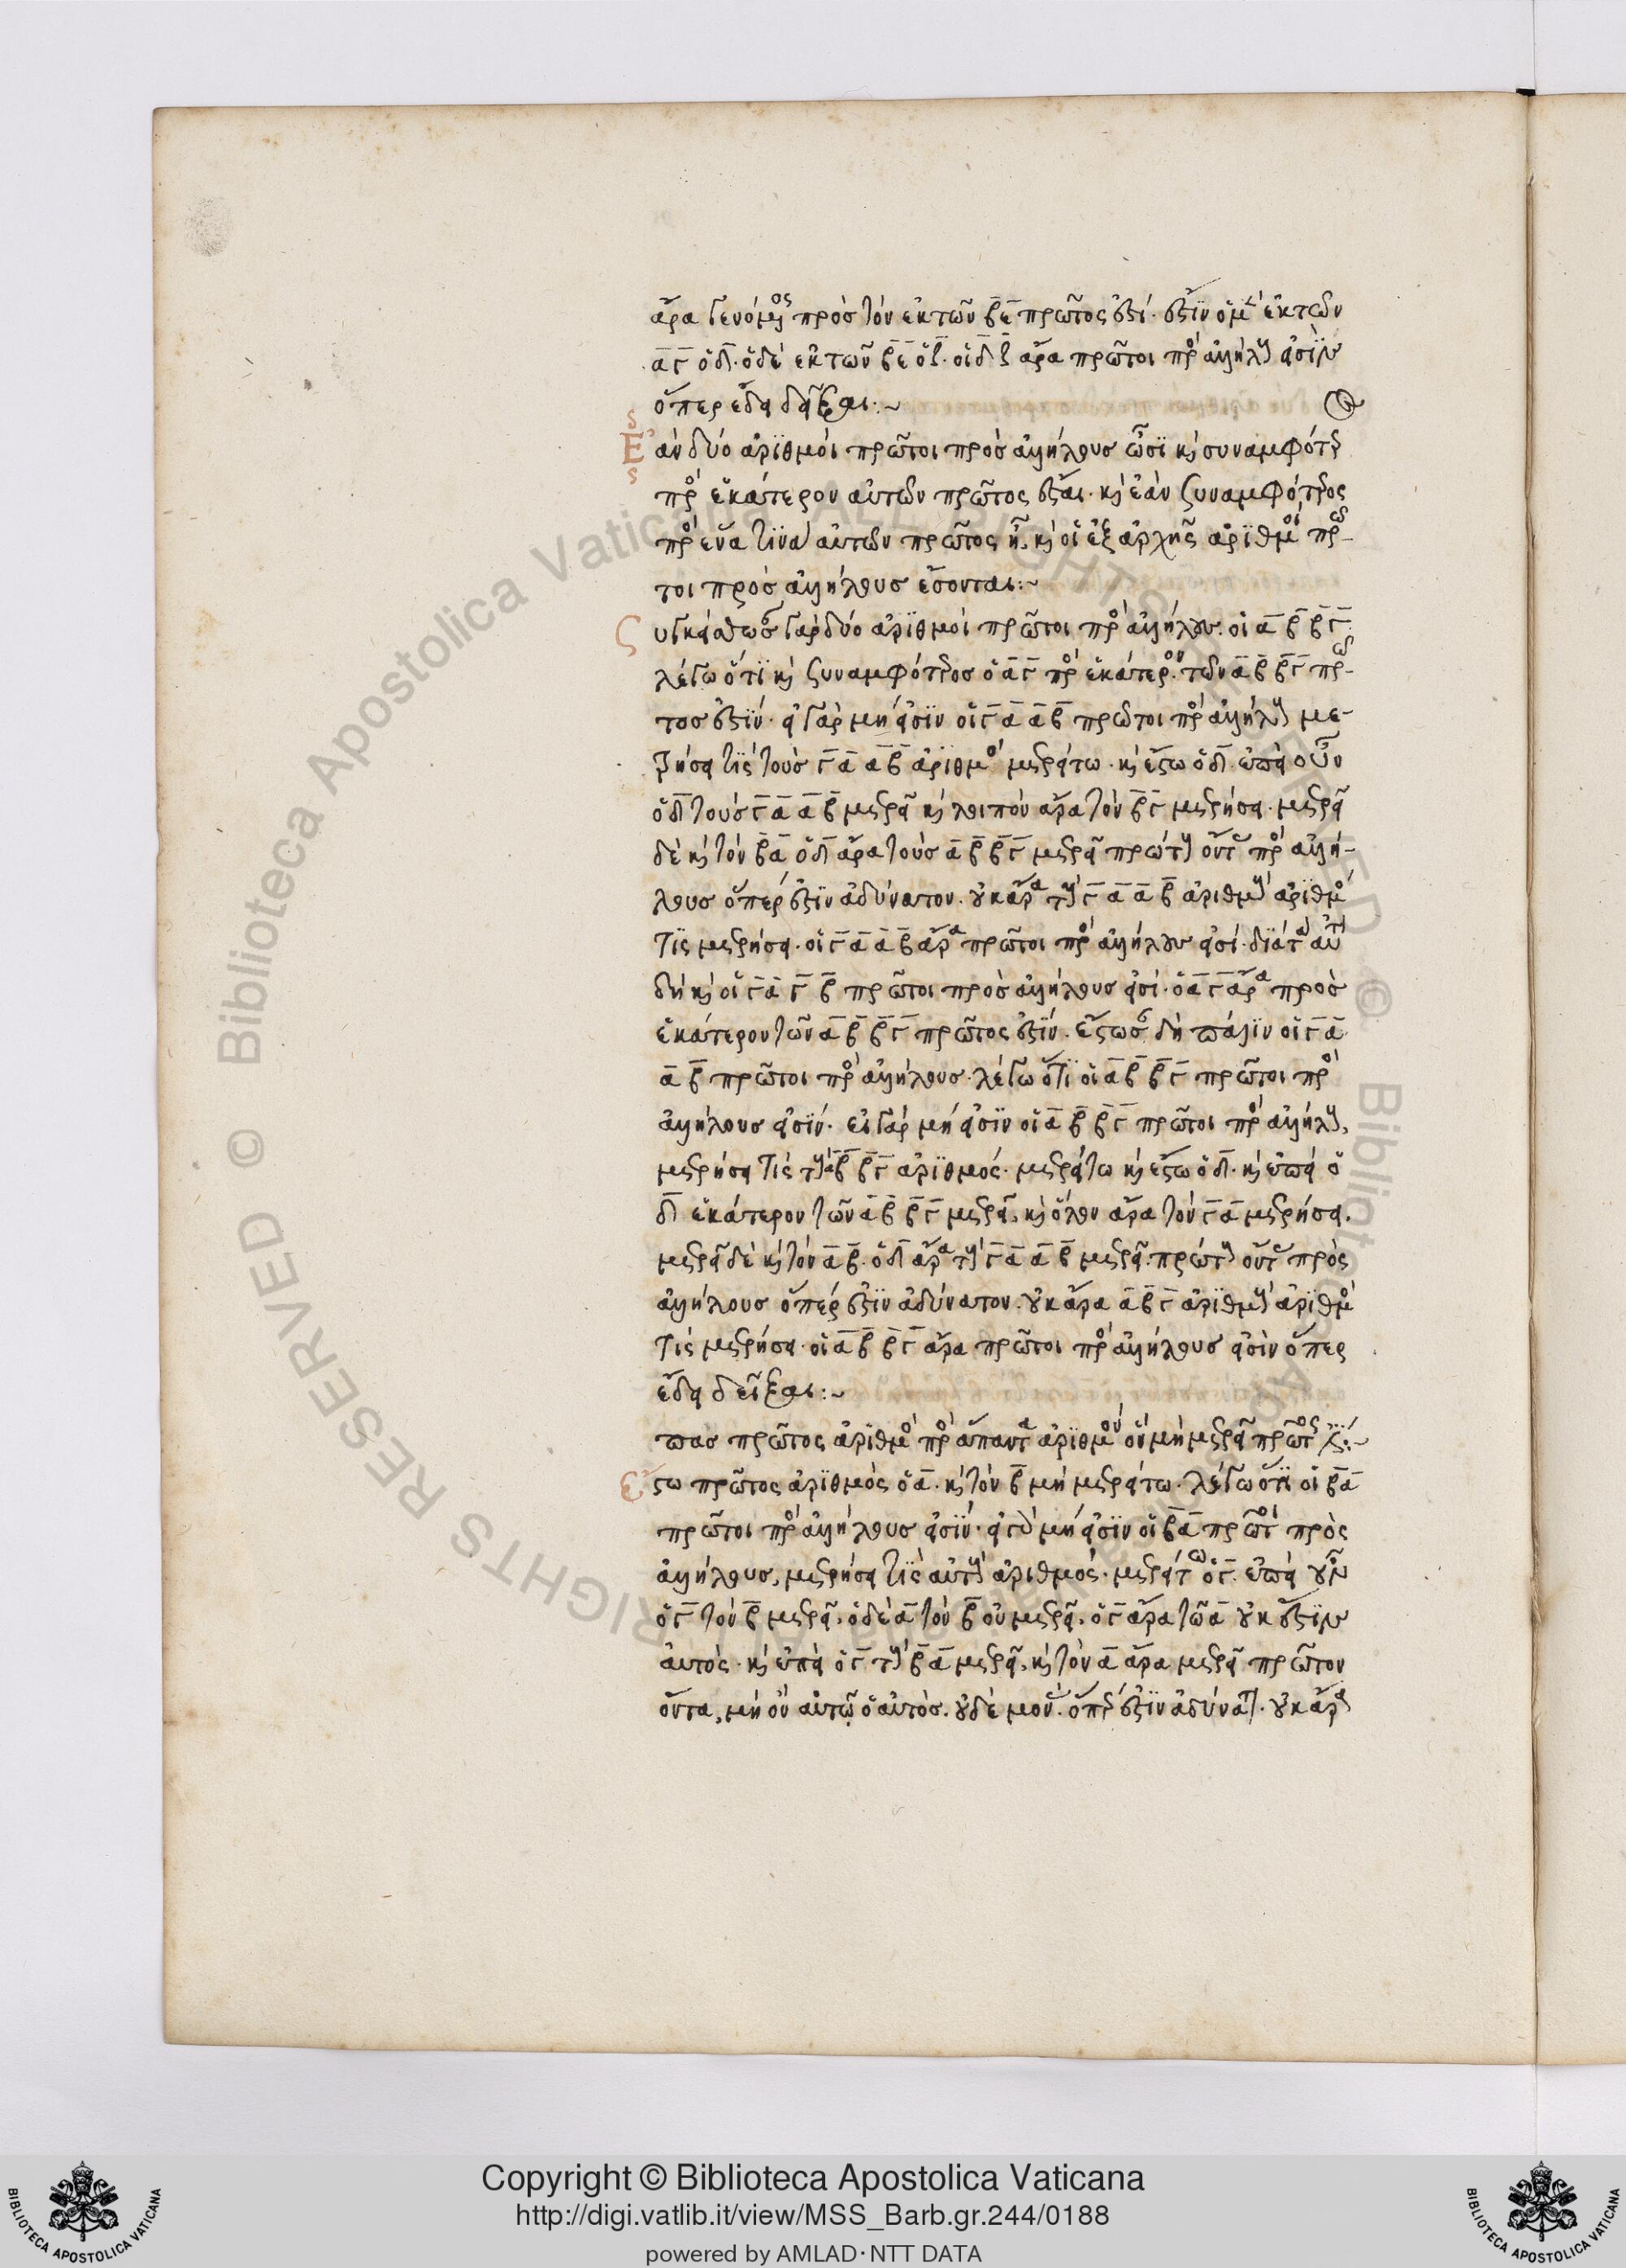 ἄρα γενόμενος πρὸς τὸν ἐκ τῶν β̅ε̅ πρῶτος ἐστί. ἔστιν ὁ μὲν ἐκ τῶν
α̅γ̅ ὁ δ̅. ὁ δὲ ἐκ τῶν β̅ε̅ ὁ ζ̅. οἱ δ̅ ζ̅ ἄρα πρῶτοι πρὸς ἀλλήλους εἰσὶν
ὅπερ ἔδει δεῖξαι:~
Ἐὰν δύο ἀριθμοὶ πρῶτοι πρὸς ἀλλήλους ὦσι καὶ συναμφότερος
πρὸς ἑκάτερον αὐτῶν πρῶτος ἔσται. καὶ ἐὰν συναμφότερος
πρὸς ἕνα τινὰ αὐτῶν πρῶτος ᾖ, καὶ οἱ ἐξ ἀρχῆς ἀριθμοὶ πρῶ-
τοι πρὸς ἀλλήλους ἔσονται:~
Συγκείσθωσαν γὰρ δύο ἀριθμοὶ πρῶτοι πρὸς ἀλλήλους. οἱ α̅β̅ β̅γ̅
λέγω ὅτι καὶ συναμφότερος ὁ α̅γ̅ πρὸς ἑκάτερον τῶν α̅β̅ β̅γ̅ πρῶ-
τος ἐστίν. εἰ γὰρ μή εἰσιν οἱ γ̅α̅ α̅β̅ πρῶτοι πρὸς ἀλλήλους με-
τρήσει τὶς τοὺς γ̅α̅ α̅β̅ ἀριθμός μετρείτω. καὶ ἔστω ὁ δ̅. ἐπεὶ οὖν
ὁ δ̅ τοὺς γ̅α̅ α̅β̅ μετρεῖ καὶ λοιπὸν ἄρα τὸν β̅γ̅ μετρήσει. μετρεῖ
δὲ καὶ τὸν β̅α̅ ὁ δ̅ ἄρα τοὺς α̅β̅ β̅γ̅ μετρεῖ πρώτους ὄντας πρὸς ἀλλή-
λους ὅπέρ ἐστιν ἀδύνατον. οὐκ ἄρα τοὺς γ̅α̅ α̅β̅ ἀριθμοὺς ἀριθμός
τὶς μετρήσει. οἱ γ̅α̅ α̅β̅ ἄρα πρῶτοι πρὸς ἀλλήλους εἰσί. διὰ τὰ αὐτὰ
δὴ καὶ οἱ γ̅α̅ γ̅β̅ πρῶτοι πρὸς ἀλλήλους εἰσί. ὁ α̅γ̅ ἄρα πρὸς
ἑκάτερον τῶν α̅β̅ β̅γ̅ πρῶτος ἐστίν. ἔστωσαν δὴ πάλιν οἱ γ̅α̅
α̅β̅ πρῶτοι πρὸς ἀλλήλους. λέγω ὅτι οἱ α̅β̅ β̅γ̅ πρῶτοι πρὸς
ἀλλήλους εἰσίν. εἰ γὰρ μή εἰσιν οἱ α̅β̅ β̅γ̅ πρῶτοι πρὸς ἀλλήλους,
μετρήσει τὶς τοὺς α̅β̅ β̅γ̅ ἀριθμός. μετρείτω καὶ ἔστω ὁ δ̅. καὶ ἐπεὶ ὁ
δ̅ ἑκάτερον τῶν α̅β̅ β̅γ̅ μετρεῖ, καὶ ὅλον ἄρα τὸν γ̅α̅ μετρήσει.
μετρεῖ δὲ καὶ τὸν α̅β̅. ὁ δ̅ ἄρα τοὺς γ̅α̅ α̅β̅ μετρεῖ. πρώτους ὄντας πρὸς
ἀλλήλους ὅπέρ ἐστιν ἀδύνατον. οὐκ ἄρα α̅β̅γ̅ ἀριθμοὺς ἀριθμός
τὶς μετρήσει. οἱ α̅β̅ β̅γ̅ ἄρα πρῶτοι πρὸς ἀλλήλους εἰσὶν ὅπερ
ἔδει δεῖξαι:~
πας πρῶτος ἀριθμὸς πρὸς ἅπαντα ἀριθμὸν ὃν μὴ μετρεῖ πρῶτός ἐστιν:~
Ἔστω πρῶτος ἀριθμὸς ὁ α̅. καὶ τὸν β̅ μὴ μετρείτω. λέγω ὅτι οἱ β̅α̅
πρῶτοι πρὸς ἀλλήλους εἰσίν. εἰ γὰρ μή εἰσιν οἱ β̅α̅ πρῶτοι πρὸς
ἀλλήλους, μετρήσει τὶς αὐτοὺς ἀριθμός. μετρείτω ὁ γ̅. ἐπεὶ οὖν
ὁ γ̅ τὸν β̅ μετρεῖ, ὁ δὲ α̅ τὸν β̅ οὐ μετρεῖ, ὁ γ̅ ἄρα τῶ α̅ οὐκ ἔστιν
αὐτός. καὶ ἐπεὶ ὁ γ̅ τοὺς β̅α̅ μετρεῖ, καὶ τὸν α̅ ἄρα μετρεῖ πρῶτον
ὄντα, μὴ ὢν αὐτῷ ὁ αὐτός. ὅπερ ἐστιν ἀδύνατον. οὐκ ἄρα